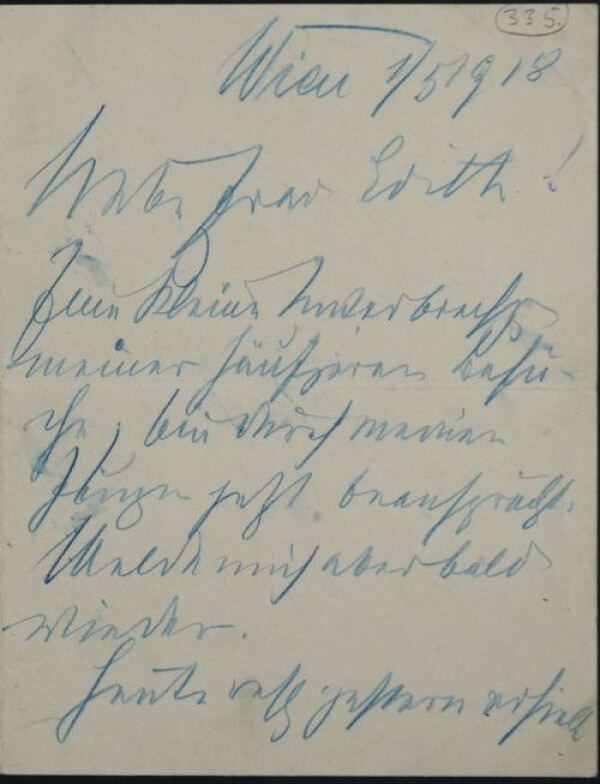 335.
Wien 1/5 1918
Liebe Frau Edith!
Eine kleine Unterbrechg
meiner häufigeren Besu-
che, bin durch meinen
Jungen jetzt beansprucht.
Melde mich aber bald
wieder.
Heute resp gestern erhielt